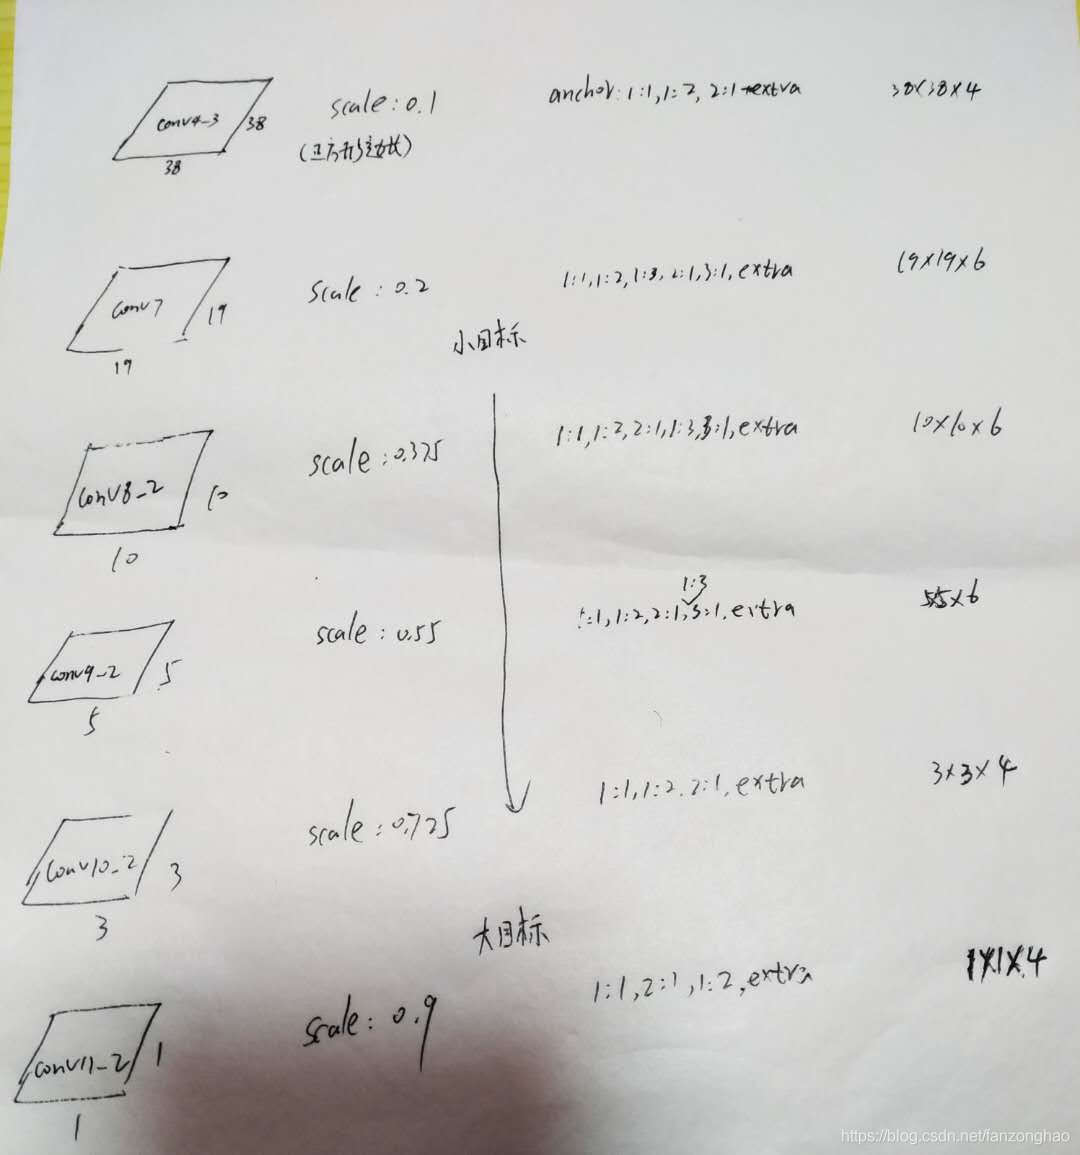 conv4-3 38 scale:0.1 anchor:1:1,1:2, 2:1 extra 38×38×4
38 (正方形边长)
conv7 19 scale:0.2 1:1,1:2,1:3,2:1,3:1,extra 19×19×6
19
小目标
conv8-2 10 scale:0.375 1:1,1:2,2:1,1:3,3:1,extra 10×10×6
10
1:3
conv9-2 5 scale:0.55 1:1,1:2,2:1,3:1,extra 55×6
5
conv10-2 3 scale:0.725 1:1,1:2.2:1,extra 3×3×4
3
大目标
conv11-2 1 scale:0.9 1:1,2:1,1:2,extra 1×1×4
1
https://blog.csdn.net/fanzonghao